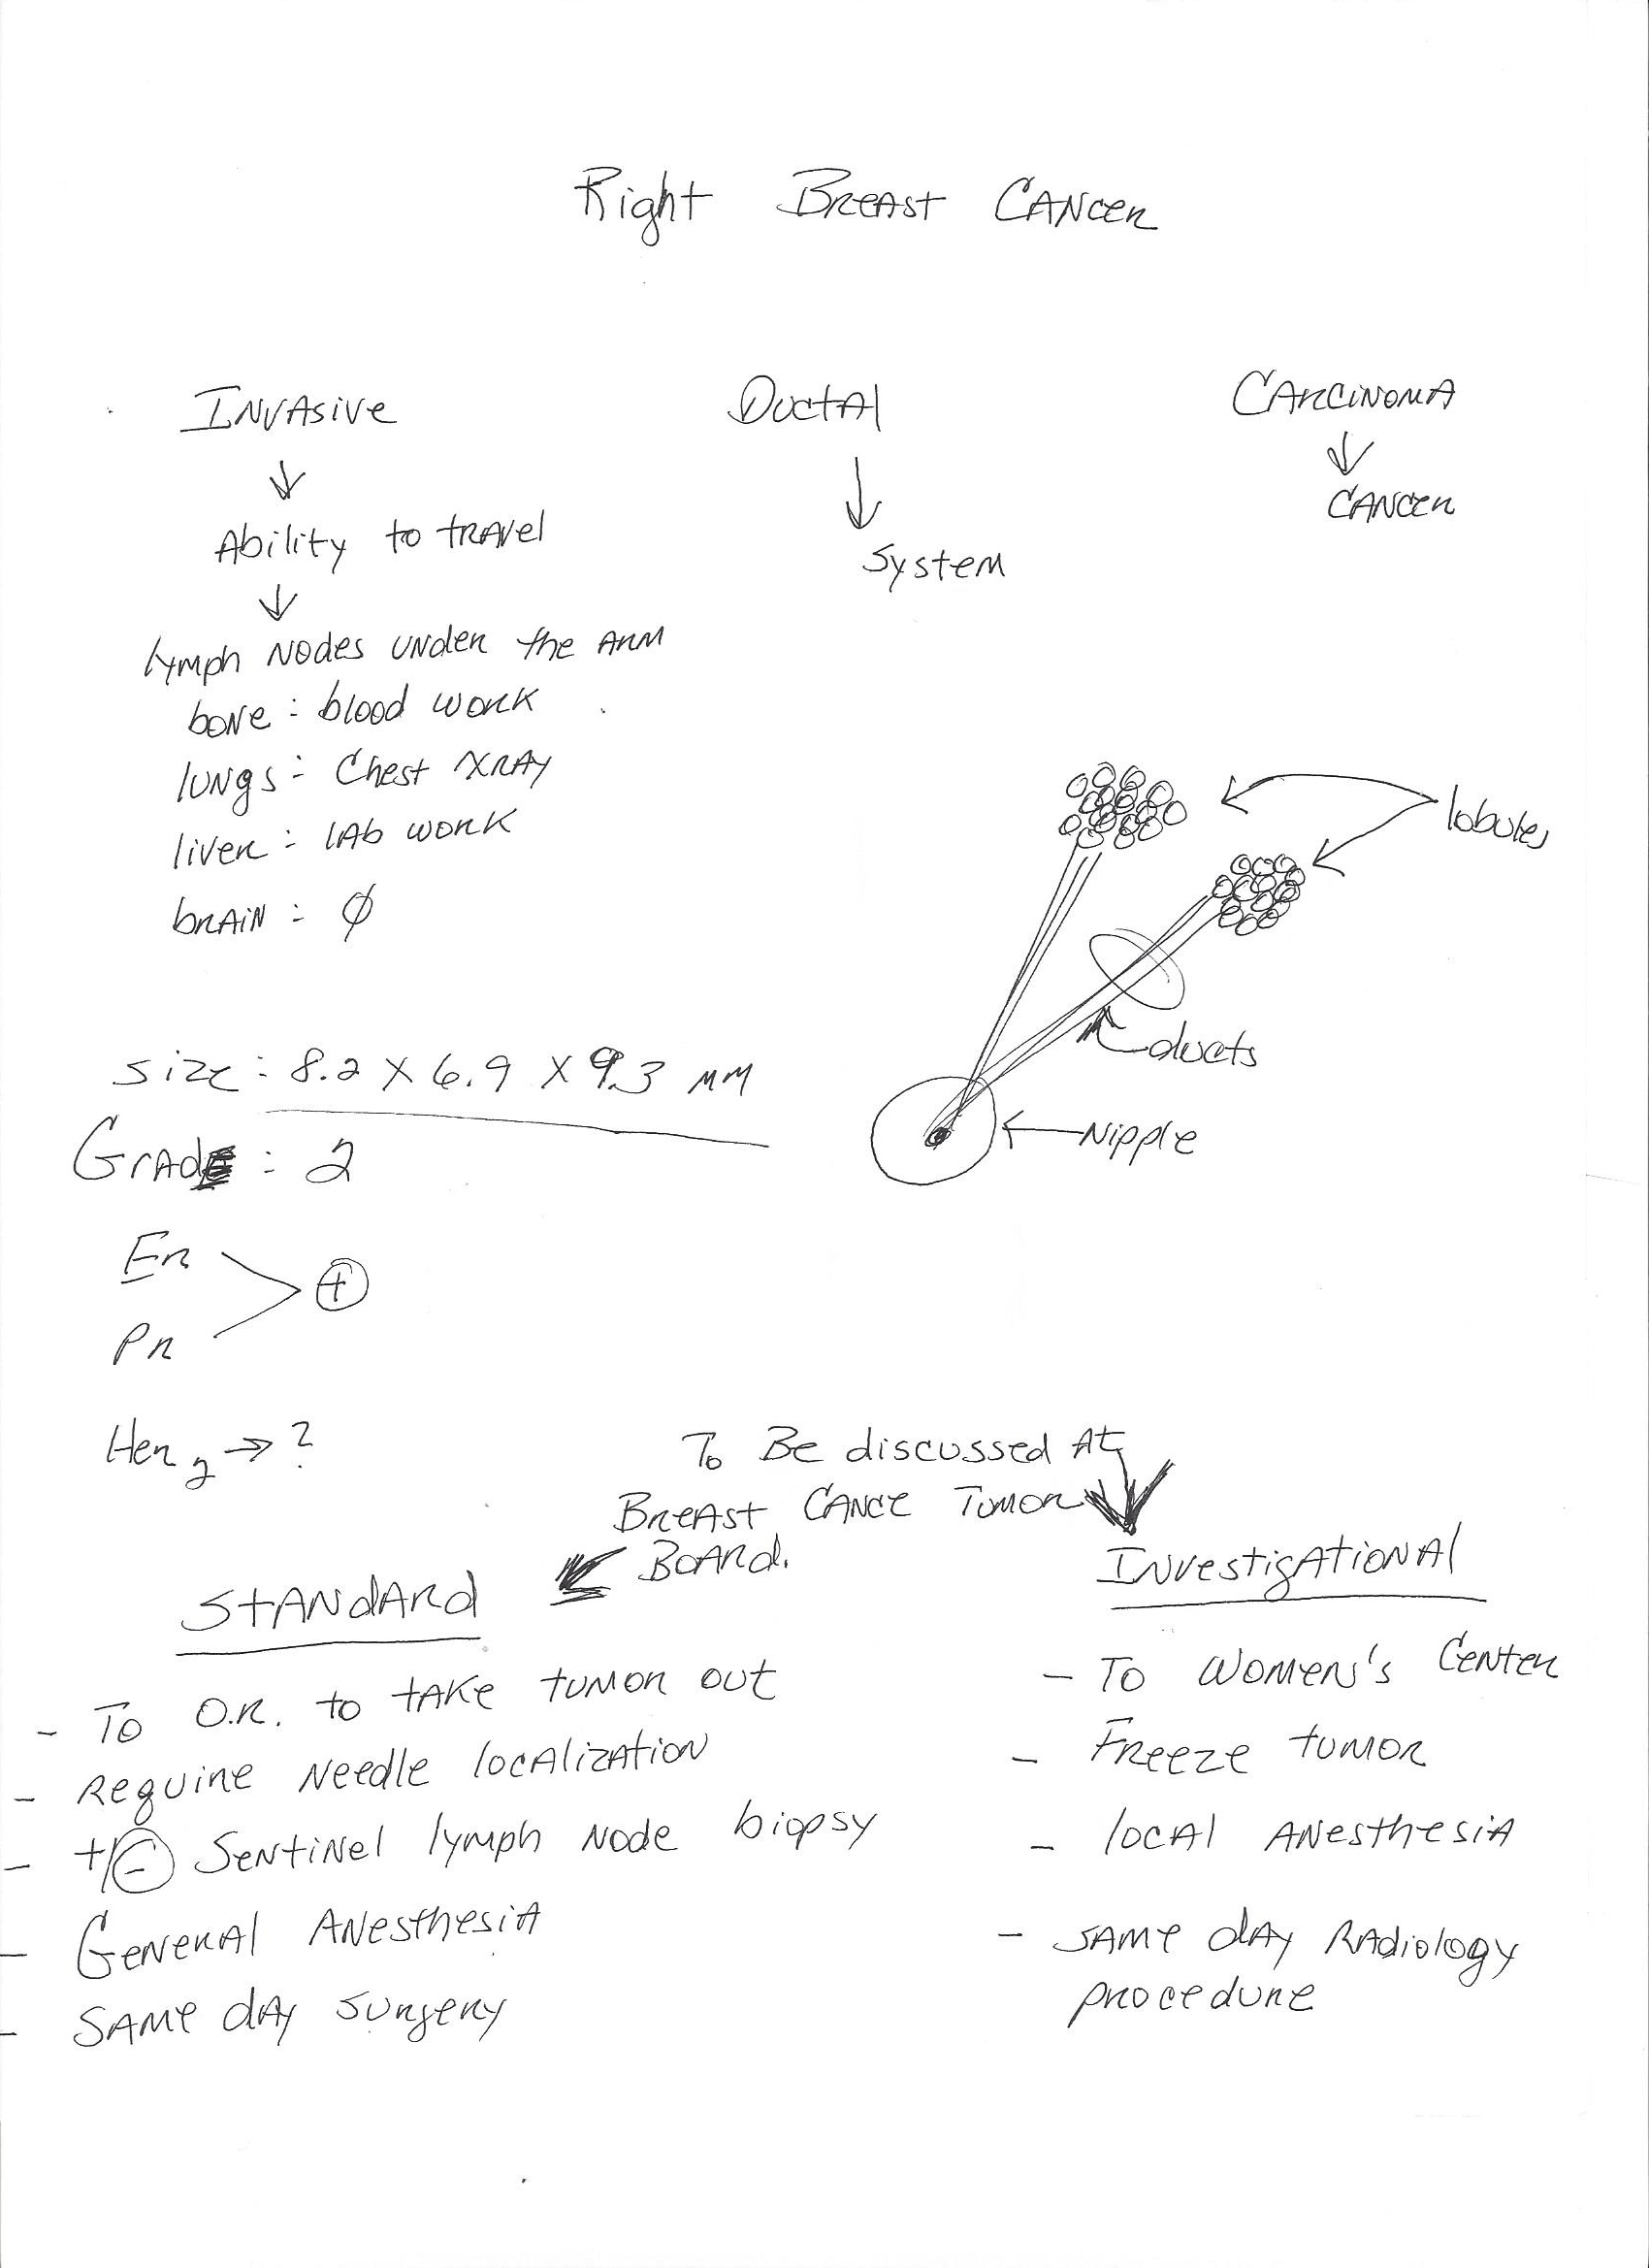 Right Breast Cancer
Invasive
Ductal
Carcinoma
↓
↓
↓
Cancer
Ability to travel
System
↓
lymph nodes under the arm
bone: blood work
lungs: Chest xray
liver: lab work
brain: ∅
lobules
ducts
Nipple
Size: 8.2 x 6.9 x 9.3 mm
Grade: 2
Er
+
Pr
Her2 → ?
To Be discussed At
Breast Cance Tumor
Board.
Standard
- To O.R. to take tumor out
- Require Needle localization
- +/- Sentinel lymph Node biopsy
- General Anesthesia
- Same day surgery
Investigational
- To Women's Center
- Freeze tumor
- local Anesthesia
- Same day Radiology
procedure